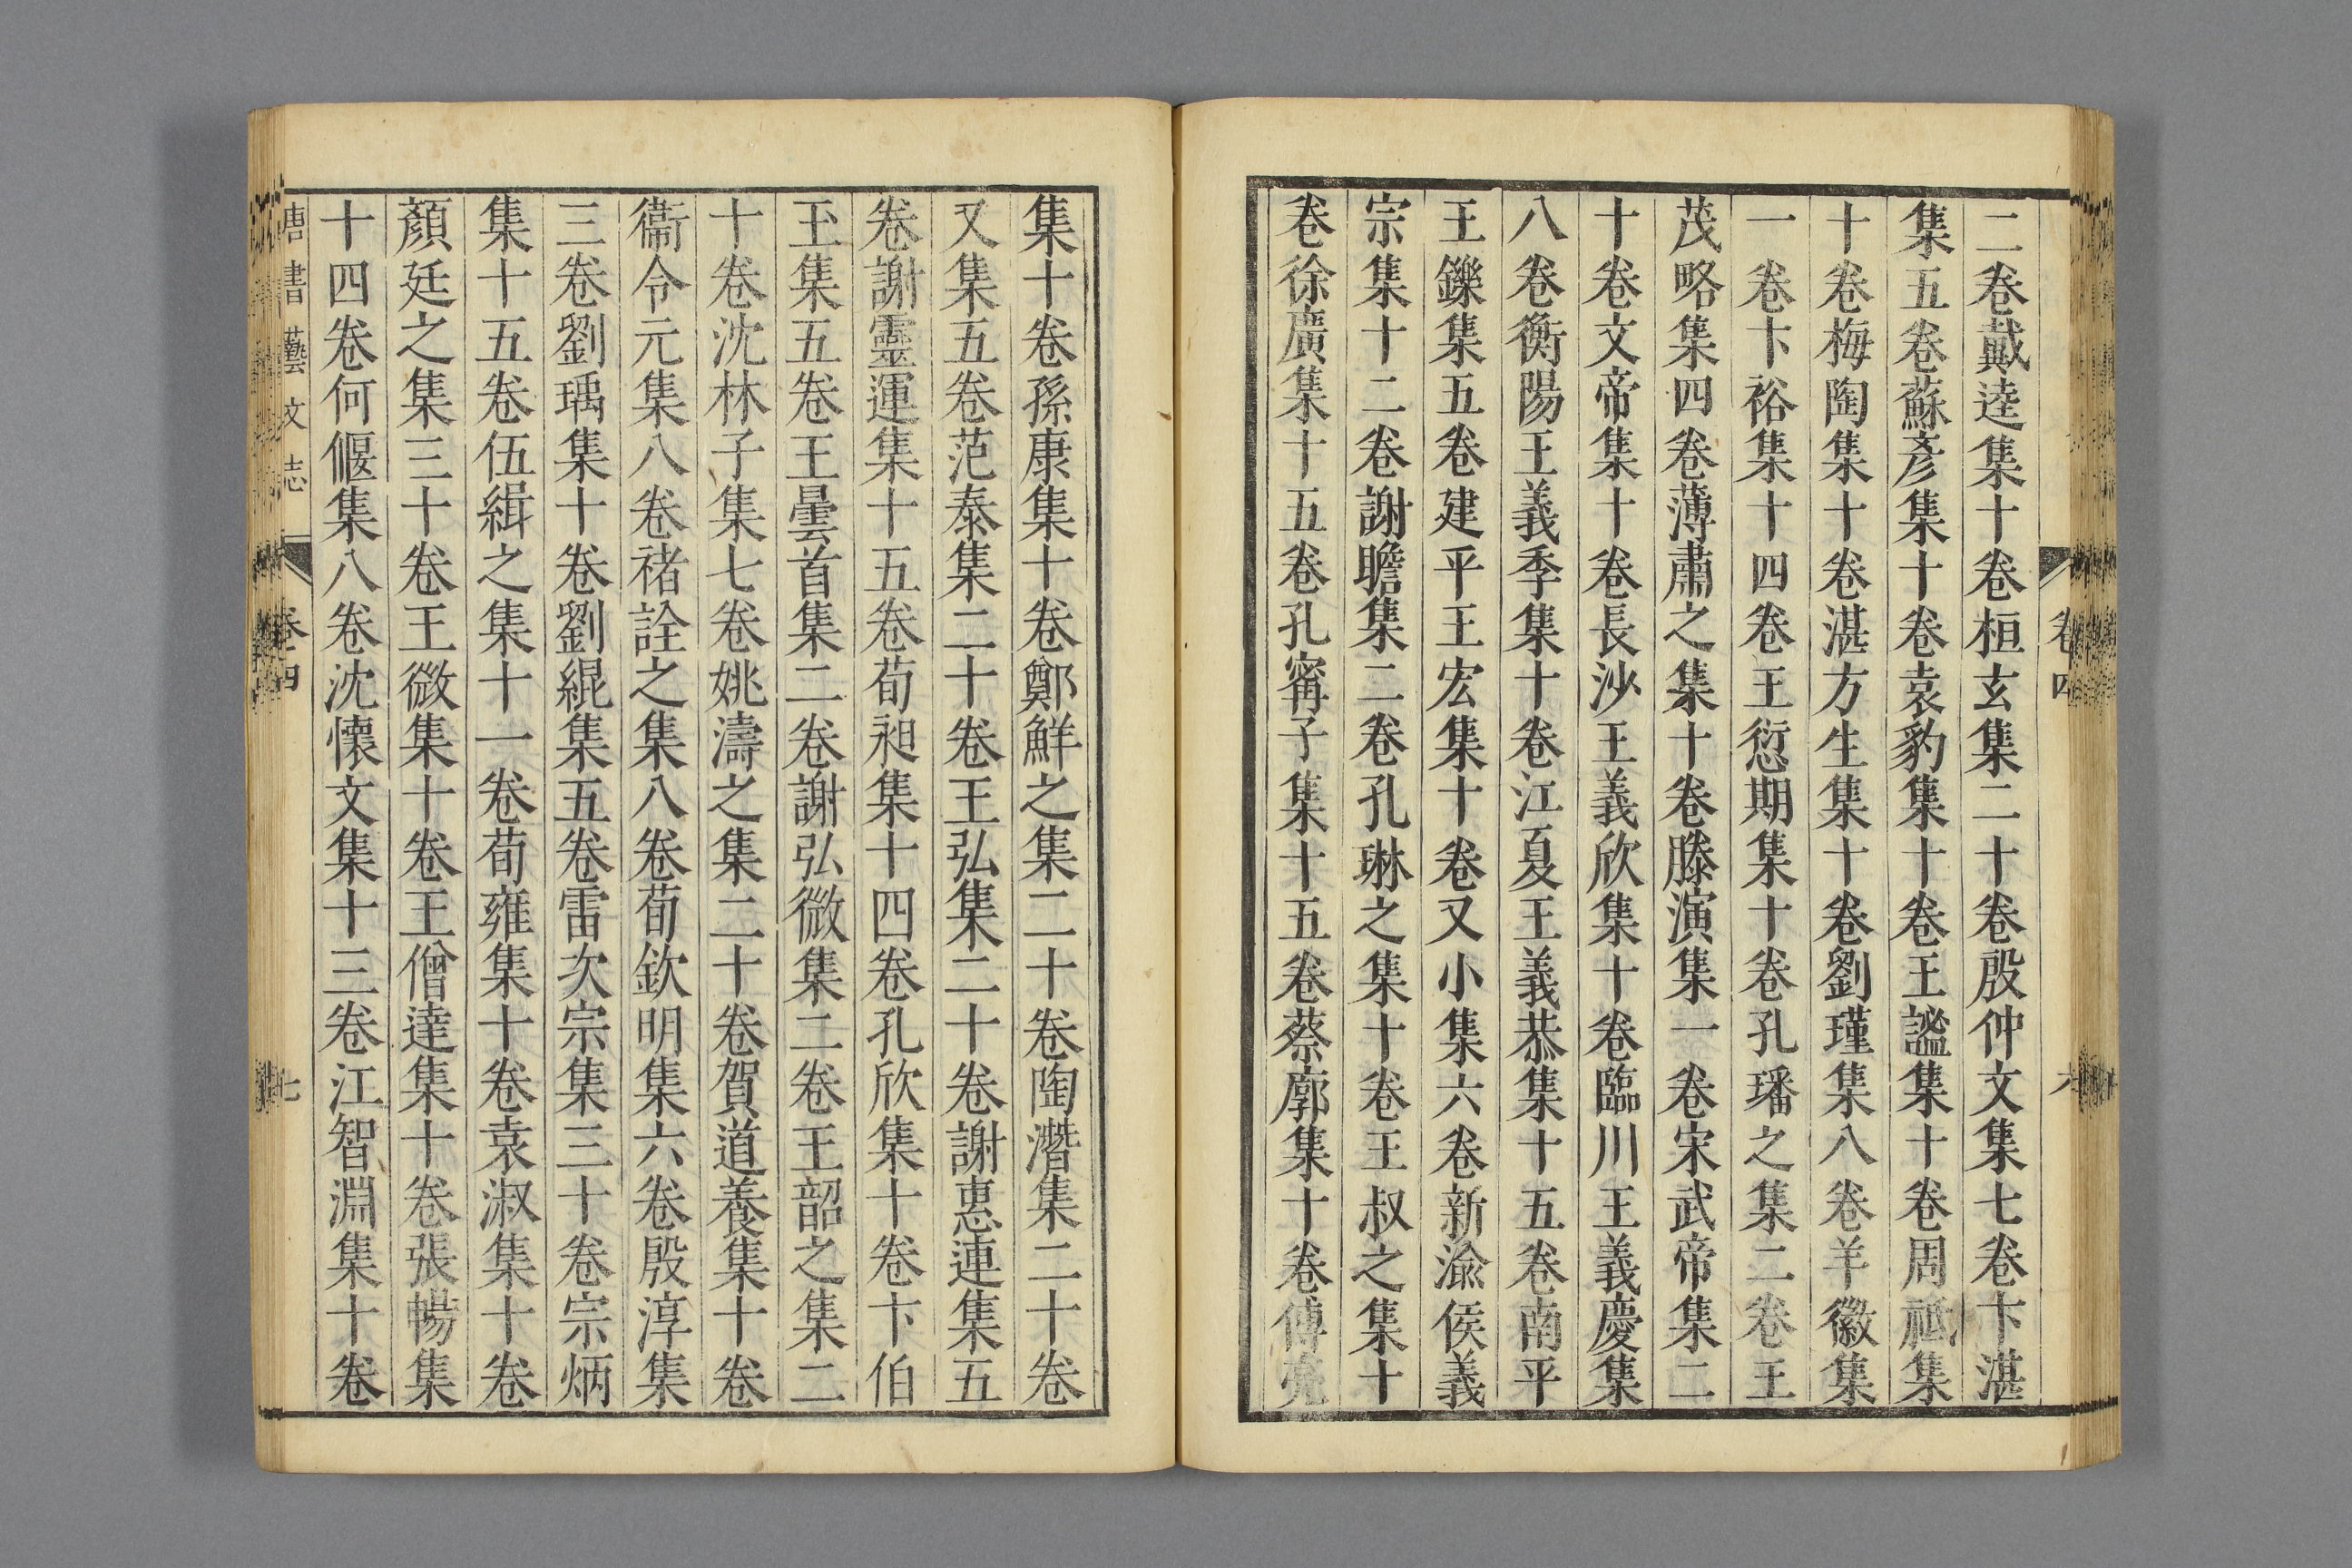 二卷戴逵集十卷桓玄集二十卷殷仲文集七卷卞湛
集五卷蘇彥集十卷袁豹集十卷王謐集十卷周祗集
十卷梅陶集十卷湛方生集十卷劉瑾集八卷羊徽集
一卷卞裕集十四卷王愆期集十卷孔璠之集二卷王
茂略集四卷薄肅之集十卷滕演集一卷宋武帝集二
十卷文帝集十卷長沙王義欣集十卷臨川王義慶集
八卷衡陽王義季集十卷江夏王義恭集十五卷南平
王鑠集五卷建平王宏集十卷又小集六卷新渝侯義
宗集十二卷謝瞻集二卷孔琳之集十卷王叔之集十
卷徐廣集十五卷孔寗子集十五卷蔡廓集十卷傅亮
卷四
集十卷孫康集十卷鄭鮮之集二十卷陶潛集二十卷
又集五卷范泰集二十卷王弘集二十卷謝惠連集五
卷謝靈運集十五卷荀昶集十四卷孔欣集十卷卞伯
玉集五卷王曇首集二卷謝弘微集二卷王韶之集二
十卷沈林子集七卷姚濤之集二十卷賀道養集十卷
衞令元集八卷褚詮之集八卷荀欽明集六卷殷淳集
三卷劉瑀集十卷劉緄集五卷雷次宗集三十卷宗炳
集十五卷伍緝之集十一卷荀雍集十卷袁淑集十卷
顏延之集三十卷王微集十卷王僧達集十卷張暢集
十四卷何偃集八卷沈懷文集十三卷江智淵集十卷
唐書藝文志 卷四 七